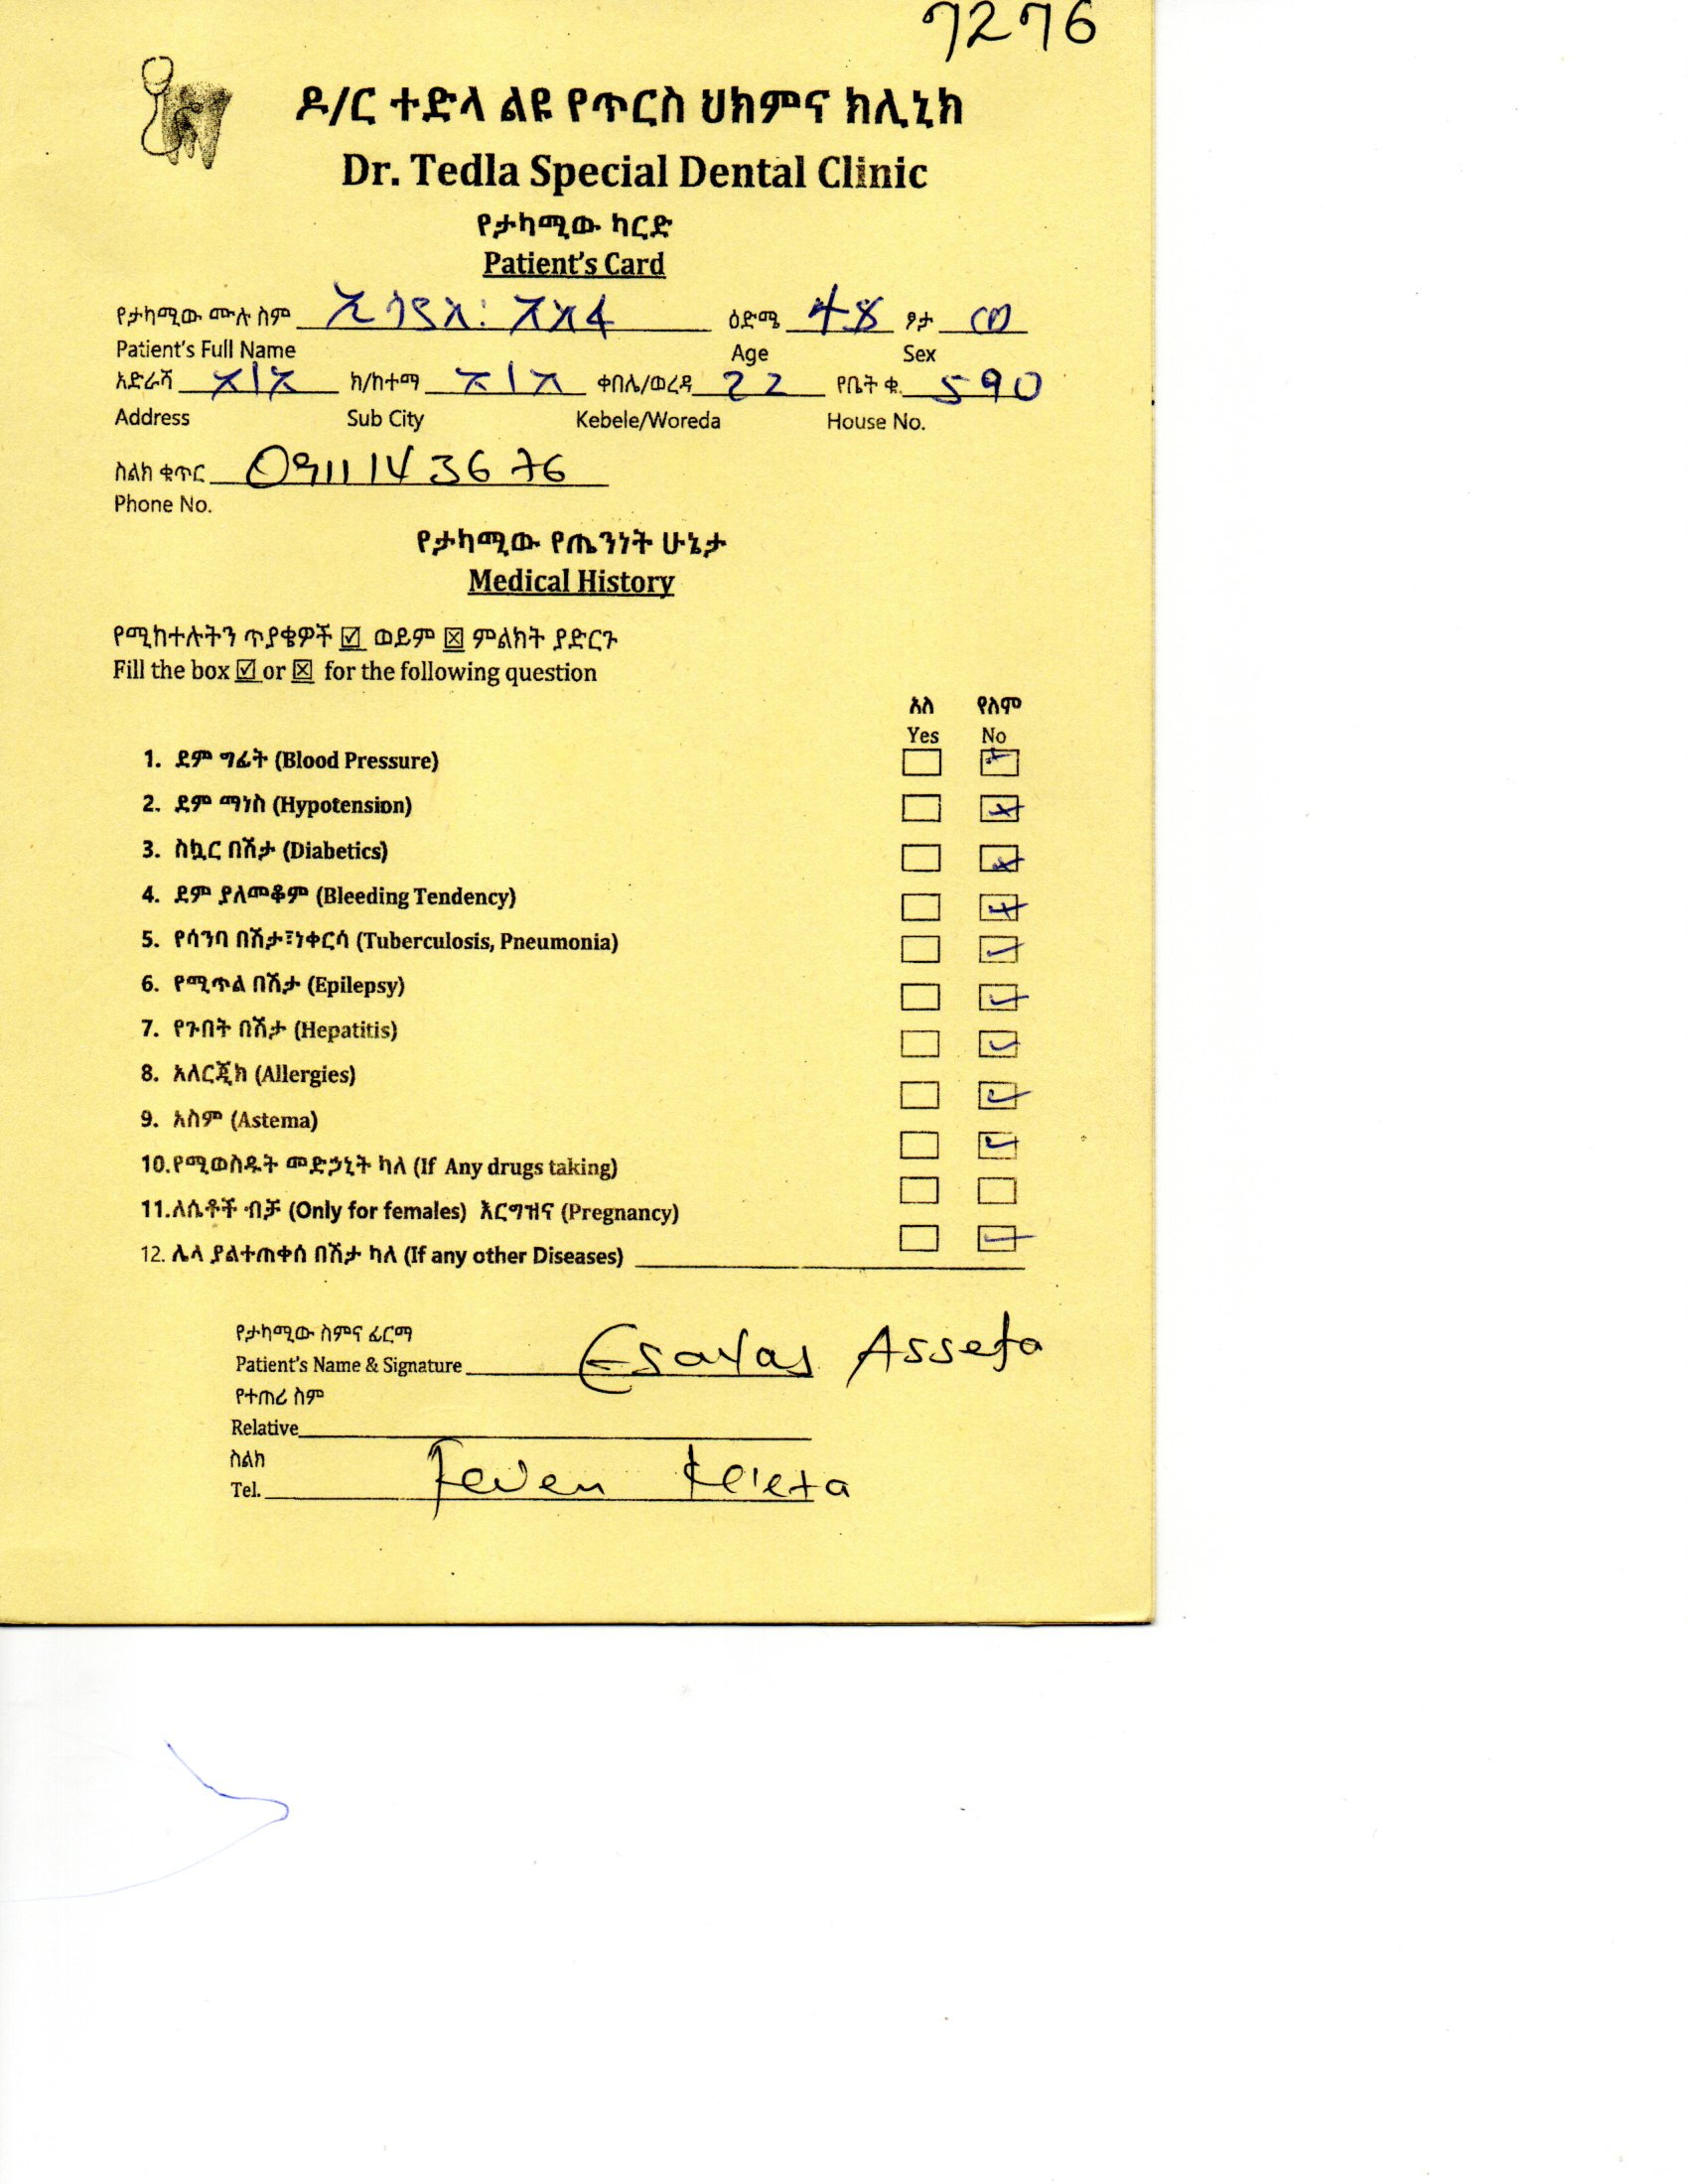 7276
ዶ/ር ተድላ ልዩ የጥርስ ህክምና ክሊኒክ
Dr. Tedla Special Dental Clinic
የታካሚው ካርድ
Patient's Card
የታካሚው ሙሉ ስም ዕድሜ 48 ፆታ ወ
Patient's Full Name Age Sex
አድራሻ አ/አ ክ/ከተማ አ/አ ቀበሌ/ወረዳ 22 የቤት ቁ. 590
Address Sub City Kebele/Woreda House No.
ስልክ ቁጥር 0911143676
Phone No.
የታካሚው የጤንነት ሁኔታ
Medical History
የሚከተሉትን ጥያቄዎች ☑ ወይም ☒ ምልክት ያድርጉ
Fill the box ☑ or ☒ for the following question
አለ የለም
Yes No
1. ደም ግፊት (Blood Pressure)
2. ደም ማነስ (Hypotension)
3. ስኳር በሽታ (Diabetics)
4. ደም ያለመቆም (Bleeding Tendency)
5. የሳንባ በሽታ፣ነቀርሳ (Tuberculosis, Pneumonia)
6. የሚጥል በሽታ (Epilepsy)
7. የጉበት በሽታ (Hepatitis)
8. አለርጂክ (Allergies)
9. አስም (Astema)
10.የሚወስዱት መድኃኒት ካለ (If Any drugs taking)
11.ለሴቶች ብቻ (Only for females) እርግዝና (Pregnancy)
12. ሌላ ያልተጠቀሰ በሽታ ካለ (If any other Diseases)
የታካሚው ስምና ፊርማ
Patient's Name & Signature Esayas Assefa
የተጠሪ ስም
Relative
ስልክ
Tel. Feven